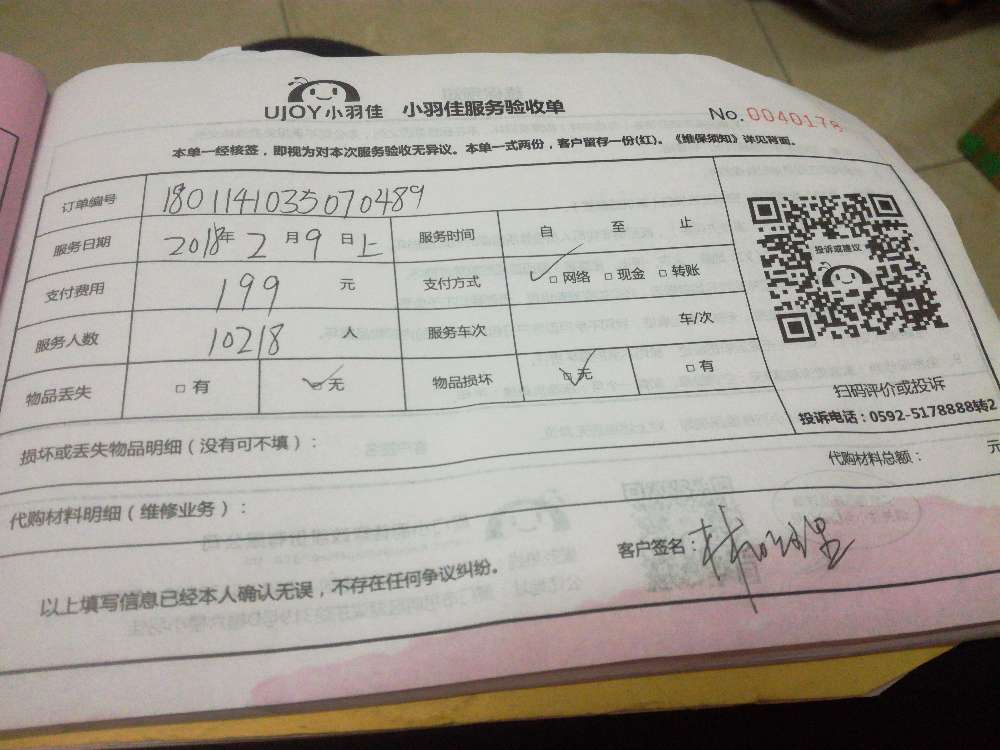 UJOY小羽佳 小羽佳服务验收单
No.0040178
本单一经核签,即视为对本次服务验收无异议。本单一式两份,客户留存一份(红)。《维保须知》详见背面。
订单编号 1801141035070489
服务日期 2018年2月9日上 服务时间 自 至 止
支付费用 199 元 支付方式 ☑网络 □现金 □转账
服务人数 10218 人 服务车次 车/次
物品丢失 □有 ☑无 物品损坏 ☑无 □有
投诉或建议
扫码评价或投诉
投诉电话:0592-5178888转2
损坏或丢失物品明细(没有可不填):
代购材料明细(维修业务): 代购材料总额: 元
以上填写信息已经本人确认无误,不存在任何争议纠纷。 客户签名: